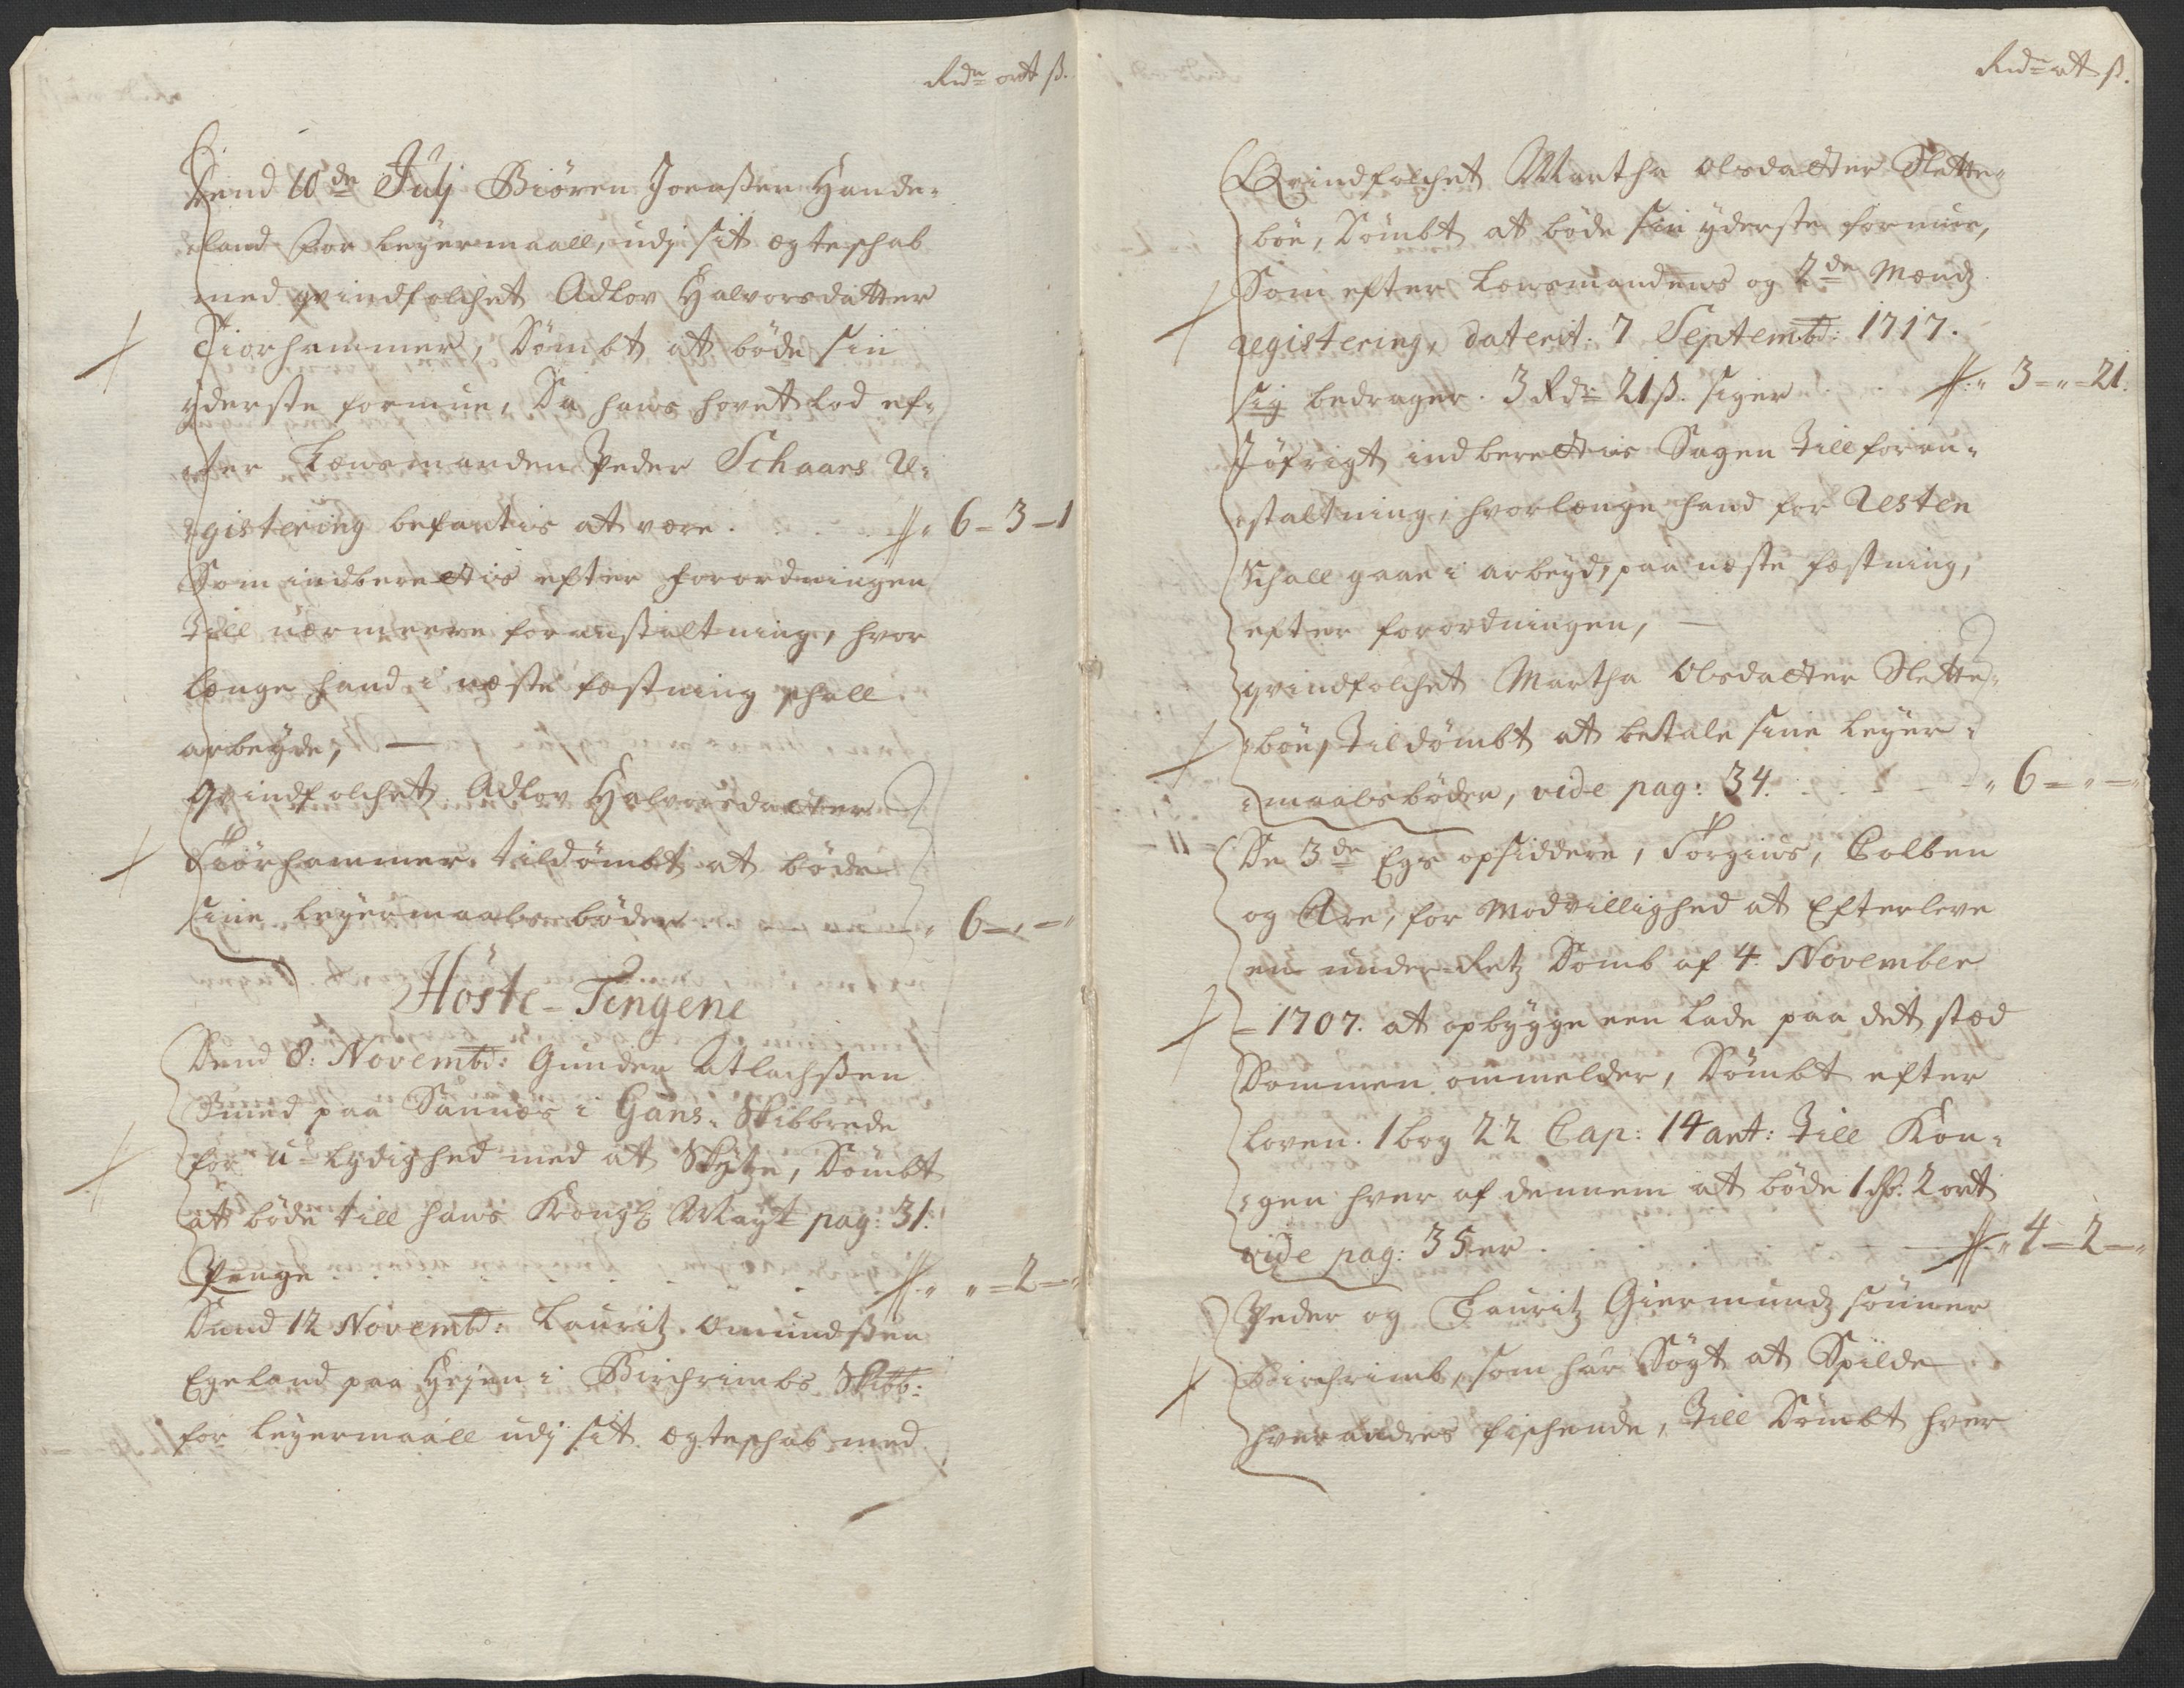 Rdr ort ß.
Dend 10de Julj Biören Joenßen Hande-
land for leÿermaall, udj sit egteschab
med qvindfolchet Adlov Halvorsdatter
Tiorhammer, Dömbt at böde sin
ÿderste formue, Da hans hovet Lod ef-
ter Lensmanden Peder Schaars Re-
gistering befantis at være . . . 6 - 3 - 1
Som indberettis efter forordningen
Till nærmeere foranstaltning, hvor
længe hand i næste fæstning schall
arbeÿde, —
Qvindfolchet Adlov Halvorsdatter
Tiörhammer, tildömbt at böde
sine leÿermaals böder . . . " 6 - " - "
Höste-Tingene
Dend 8: Novembr: Gunder Atlachßen
Smed paa Sannes i Gans: Skibbrede
for u-lydighed med at Skÿtze, Dömbt
at böde till hans Kongl: Maÿt pag: 31.
Penge . . . " " - 2 - "
Dend 12 Novembr: Lauritz Omundßen
Egeland paa Heÿen i Birchrimbs Skibb:
for leÿermaall udj sit egteschab med
Rdr ort ß.
Qvindfolchet Martha Olsdatter Slette-
böe, Dömbt at böde sin ÿderste formue,
Som efter Lensmandens og 2de Mænds
registering, daterit: 7 Septembr: 1717.
sig bedrager. 3 Rdr: 21 ß. siger . . . " 3 - " - 21.
Jöfrigt indberettis Sagen till foran-
staltning, hvorlænge hand for Resten
Schall gaae i arbeÿd, paa næste fæstning,
efter forordningen, —
qvindfolchet Martha Olsdatter Slette-
böe, Tildömbt at betale sine leÿer-
maalsböder, vide pag: 34. . . . " 6 - " - "
De 3de Egs opsiddere, Torgius, Colben
og Are, for Modvillighed at Efterleve
en under-Retz Domb af 4. November
1707. at opbÿgge een Lade paa det stæd
Dommen ommelder, Dömbt efter
loven. 1 bog 22 Cap: 14 art: Till Kon-
gen hver af dennem at böde 1 Rdr. 2 ort
vide pag: 35 er . . . " 4 - 2 - "
Peder og Lauritz Giermundsönner
Birchrimb, som har Sögt at Spilde
hverandres fischende, Till Dömbt hver